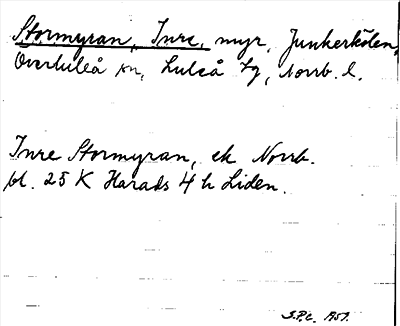 Stormyran, Inre, myr, Junkerkölen,
Överluleå sn, Luleå tg, Norrb. l.
Inre Stormyran, ek Norrb.
bl. 25 K Harads 4 h Liden.
1951.